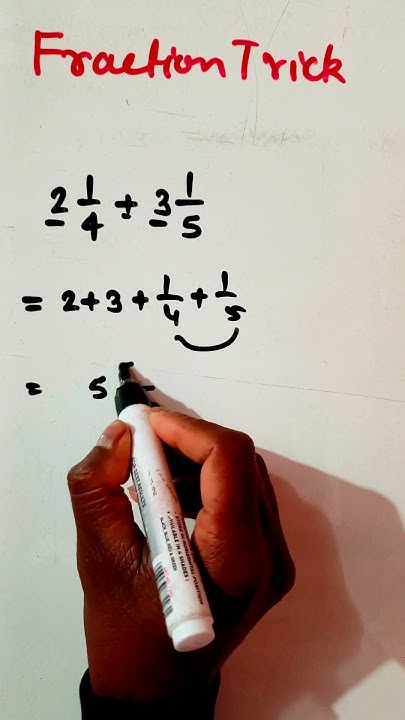 Fraction Trick
2 1/4 + 3 1/5
= 2+3+ 1/4 + 1/5
= 5